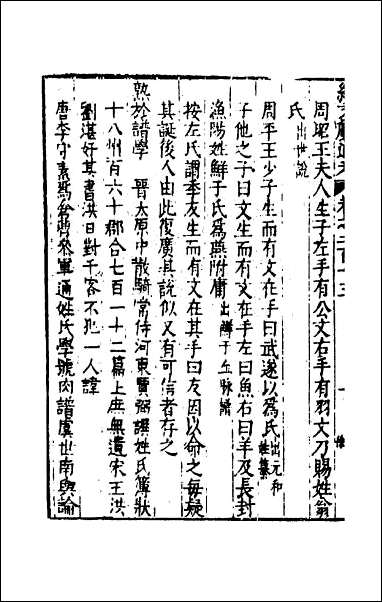 周昭王夫人生子左手有公文右手有羽文乃賜姓翁
氏出世說
周平王少子生而有文在手曰武遂以爲氏出元和姓纂
子他之子曰文生而有文在手左曰魚右曰羊及長封
漁陽姓鮮于氏爲燕附庸
按左氏謂季友生而有文在其手曰友因以命之每疑
其誕後人由此復廣其說似又有可信者存之
熟於譜學 晉太原中散騎常侍河東賈弼譔姓氏簿狀
十八州百六十郡合七百一十二篇上庶無遺宋王洪
劉湛好其書洪日對千客不犯一人諱
唐李守素爲倉曹參軍通姓氏學號肉譜虞世南與論